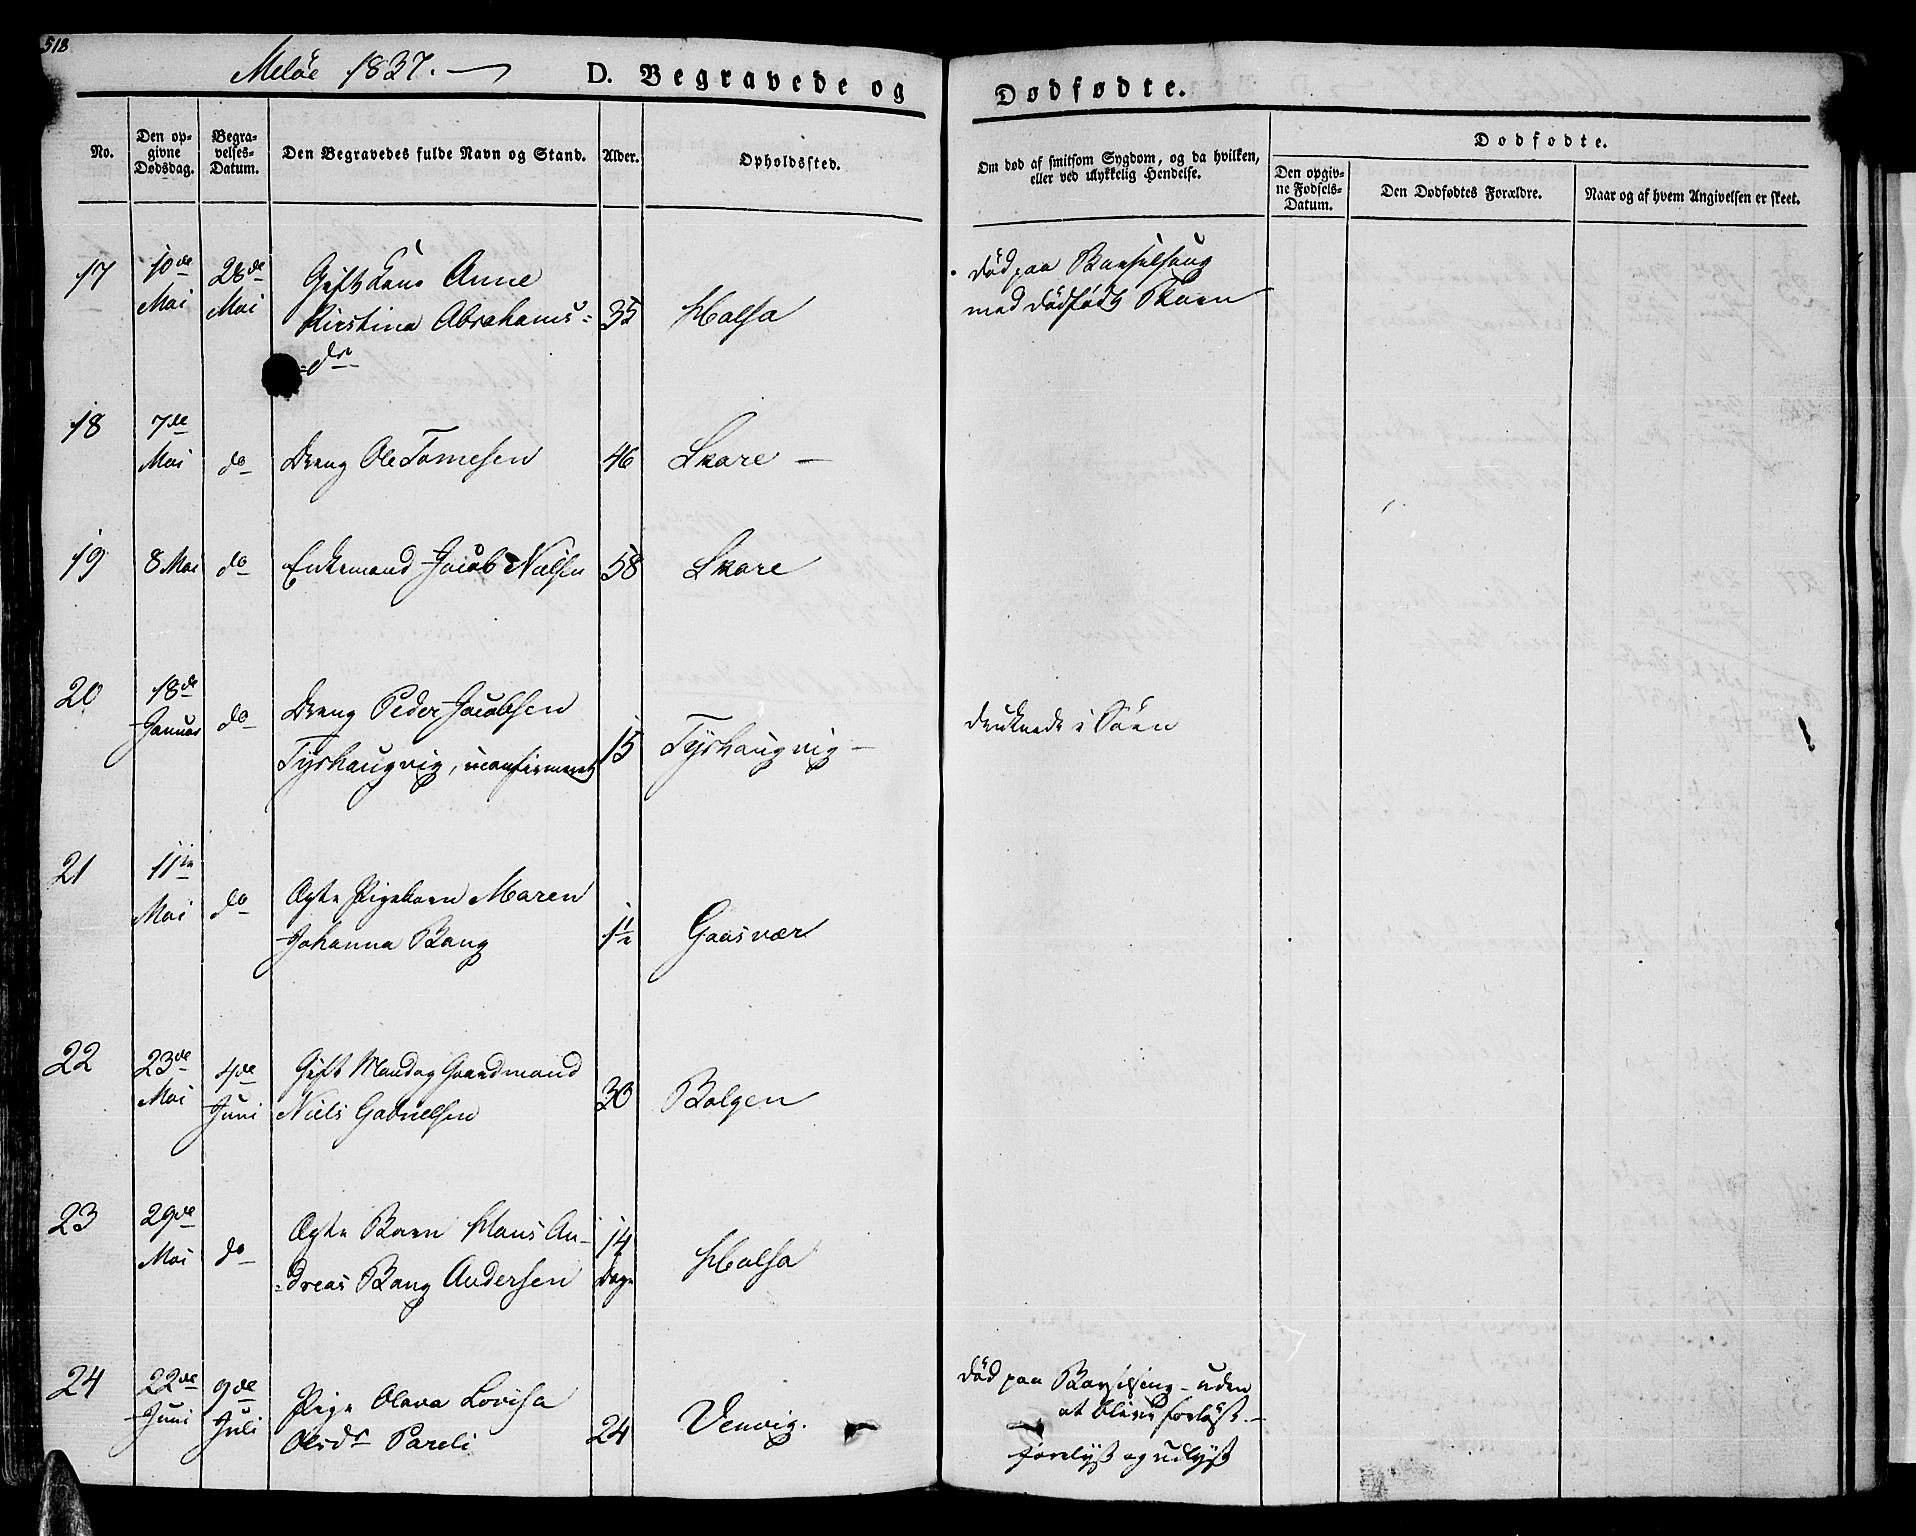 518
Meløe 1837.
D. Begravede og
Dødfødte.
No.
Den op-
givne
Dødsdag.
Begra-
velses-
Datum.
Den Begravedes fulde Navn og Stand.
Alder.
Opholdssted.
Om død af smitsom Sygdom, og da hvilken,
eller ved ulykkelig Hendelse.
Dødfødte.
Den opgiv-
ne Fødsels-
Datum.
Den Dødfødtes Forældre.
Naar og af hvem Angivelsen er skeet.
17 10de Mai 28de Mai Gift Kone Anne
Kirstina Abrahams= 35 Halsa
=dr
død paa Barselseng
med dødfødt Barn
18 7de Mai do Dreng Ole Tomesen 46 Skare -
19 8 Mai do Enkemand Jacob Nielsen 58 Skare
20 18de Januar do Dreng Peder Jacobsen
Tyshaugvig, uconfirmeret 15 Tyshaugvig -
druknede i Søen
21 11te Mai do Ægte Pigebarn Maren
Johanna Bang 1½ Gaasvær
22 23de Mai 4de Juni Gift Mand og Gaardmand
Niels Gabrielsen 30 Bolgen
23 29de Mai do Ægte Barn Hans An-
=dreas Bang Andersen 14 Dage Halsa
24 22de Juni 9de Juli Pige Olava Lovisa
Olsdr Pareli 24 Venvig.
død paa Barselseng - uden
at blive forløst. -